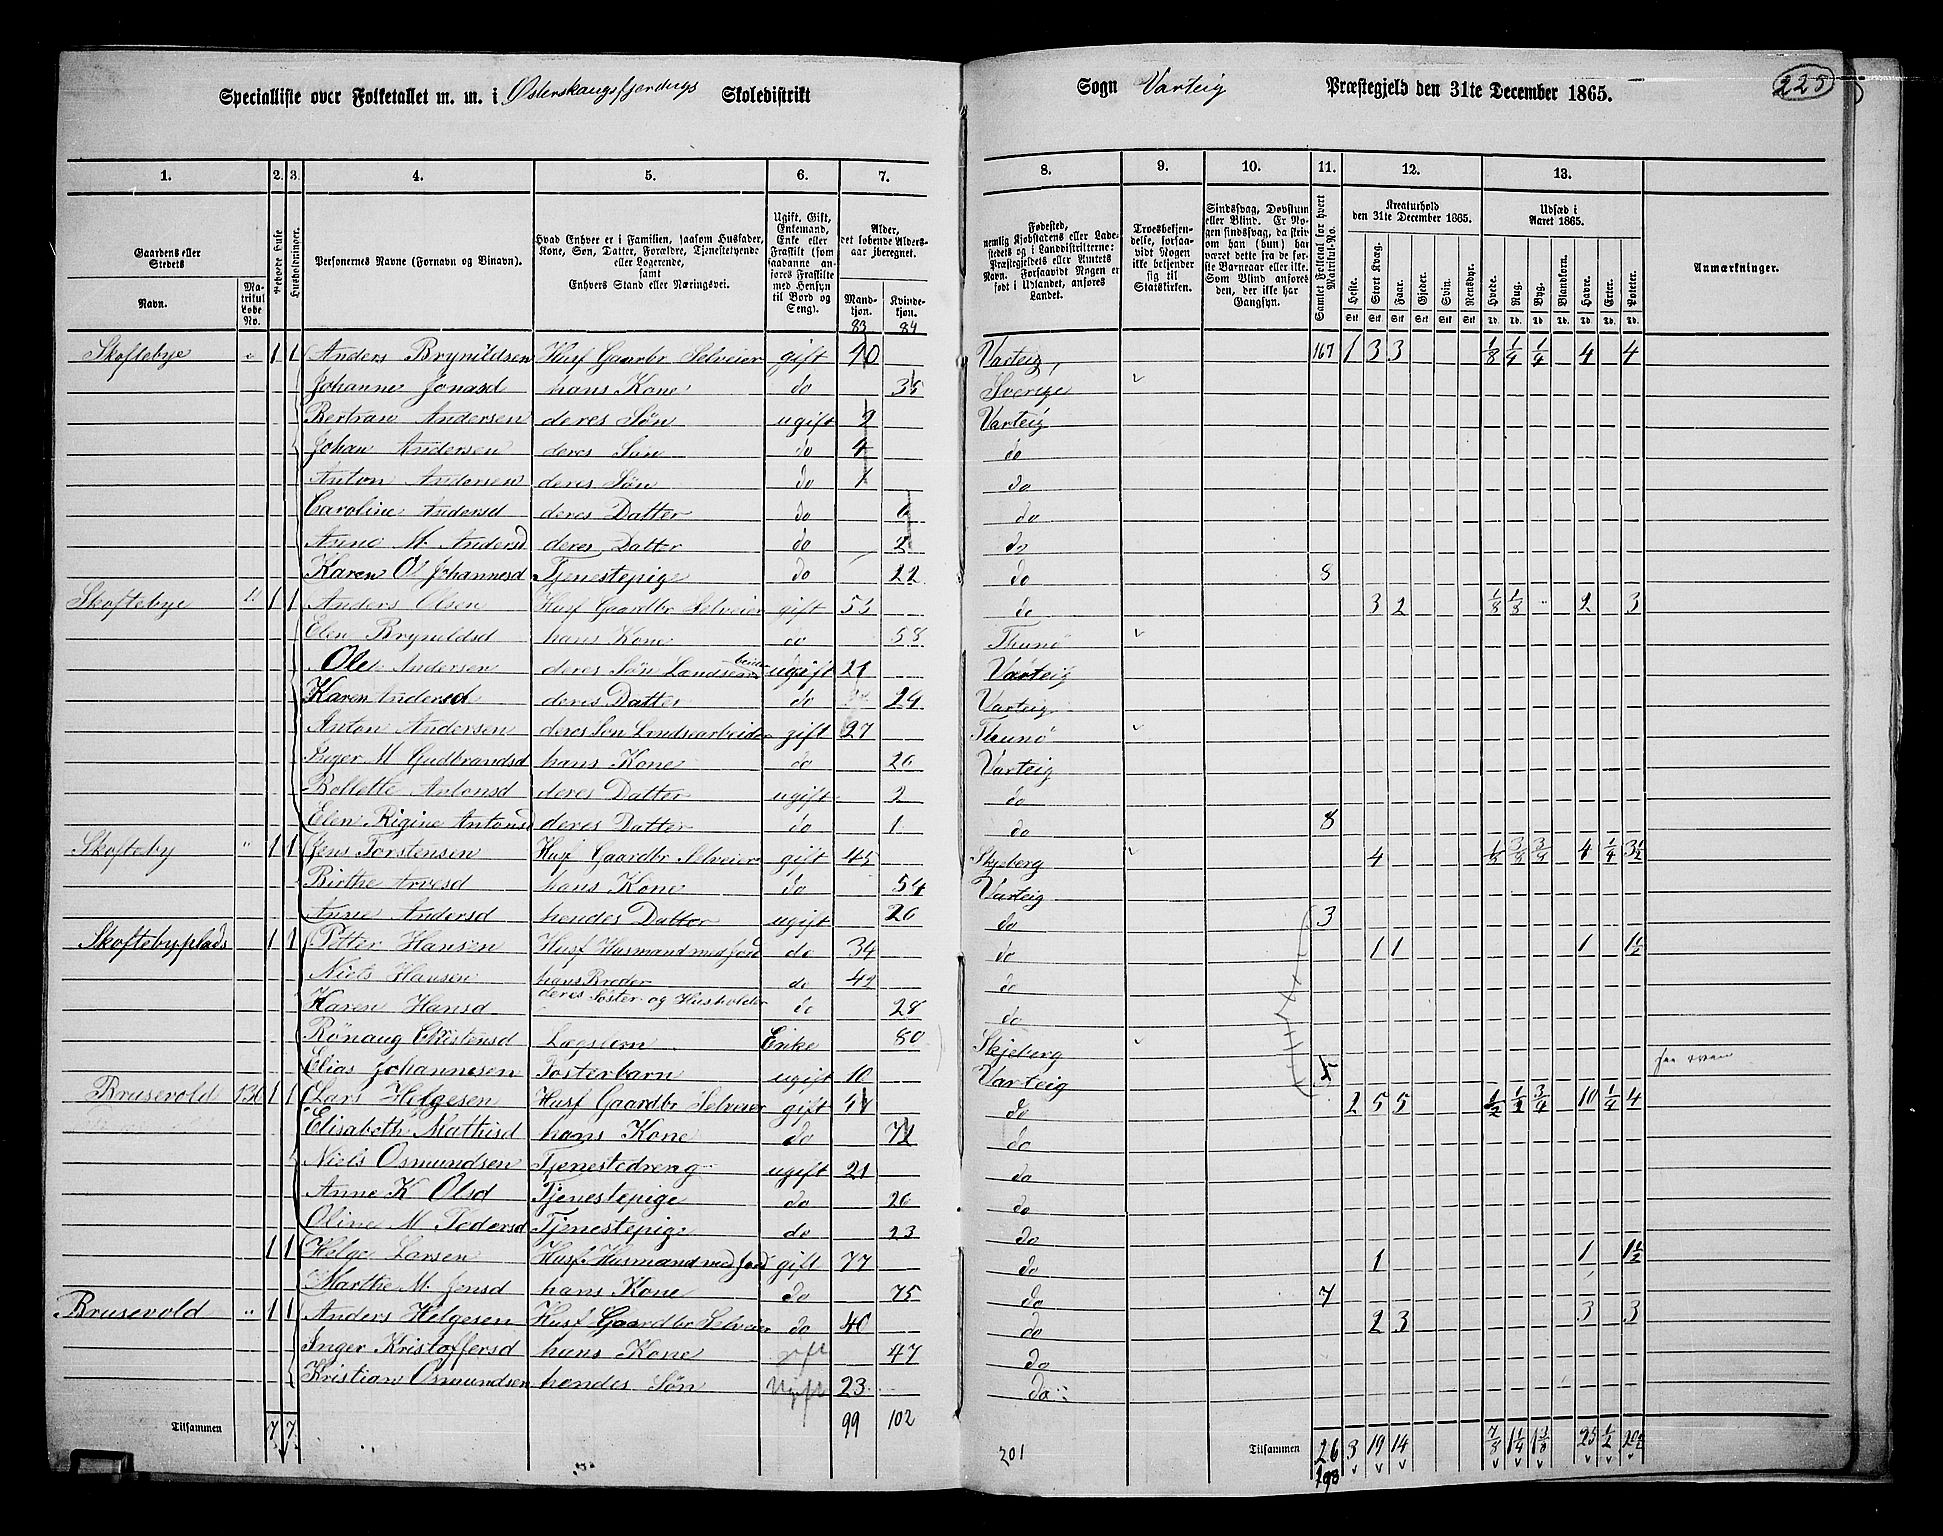 Specialliste over Folketallet m. m. i Østerskaugsfjerdings Skoledistrikt Sogn Varteig Præstegjeld den 31te December 1865. 225
1. 2. 3. 4. 5. 6. 7. 8. 9. 10. 11. 12. 13.
Gaardens eller Stedets Navn. Matrikul Løbe No. Beboede Huse Husholdninger. Personernes Navne (Fornavn og Tilnavn). Hvad Enhver er i Familien, saasom Husfader, Kone, Søn, Datter, Forældre, Tjenestetyende eller Logerende, samt Enhvers Stand eller Næringsvei. Ugift, Gift, Enkemand, Enke eller Fraskilt (som saadanne anføres Fraskilte med Hensyn til Bord og Seng). Alder, det løbende Aldersaar iberegnet. Mandkjøn. Kvindekjøn.
Fødested, nemlig Kjøbstadens eller Ladestedets og i Landdistrikterne: Præstegjeldets eller Amtets Navn. Forsaavidt Nogen er født i Udlandet, anføres Landet. Troesbekjendelse, forsaavidt Nogen ikke bekjender sig til Statskirken. Sindssvag, Døvstum eller Blind. Er Nogen sindssvag, da skrives om han (hun) har været dette fra de første Barneaar eller ikke. Som Blind anføres den, der ikke har Gangsyn. Samlet Folketal for hvert Matrikul-No. Kreaturhold den 31te December 1865. Heste. Stort Kvæg. Faar. Gjeder. Svin. Rensdyr. Udsæd i Aaret 1865. Hvede. Rug. Byg. Blandkorn. Havre. Erter. Poteter. Anmærkninger.
83 84
Skoftebye " 1 1 Anders Brynildsen Husf Gaardbr Selveier gift 40 Varteig 167 1 3 3 1/8 1/4 1/4 4 4
Johanne Jonasd hans Kone do 35 Sverige
Bertran Andersen deres Søn ugift 2 Varteig
Johan Andersen deres Søn do 4 do
Anton Andersen deres Søn do 1 do
Caroline Andersd deres Datter do do
Anne M Andersd deres Datter do 2 do
Karen O Johannesd Tjenestepige do 22 do 8
Skoftebye " 1 1 Anders Olsen Husf Gaardbr Selveier gift 53 do 3 2 1/8 1/8 2 3
Elen Brynildsd hans Kone do 58 Thunø
Ole Andersen deres Søn Landsearbeider ugift 21 Varteig
Karen Andersd deres Datter do 24 Varteig
Anton Andersen deres Søn Landsearbeider gift 27 Thunø
Inger M Gudbrandsd hans Kone do 20 Varteig
Bollette Antonsd deres Datter ugift 2 do
Elen Rigine Antonsd deres Datter do 1 do 8
Skofteby " 1 1 Jens Torstensen Husf Gaardbr Selveier gift 45 Skjeberg 4 1/8 3/8 3/8 4 1/4 3 1/2
Birthe Arvesd hans Kone do 54 Varteig
Anne Andersd hendes Datter ugift 20 do 3
Skoftebyplads 1 1 Petter Hansen Husf Husmand med Jord do 34 do 1 1 1 1 1/2
Niels Hansen hans Broder do do
Karen Hansd deres Søster og Husholder do 28 do
Rønaug Christensd Lægslem Enke 80 Skjeberg
Elias Johannesen Fosterbarn ugift 10 Varteig 5
Brusevold 130 1 1 Lars Helgesen Husf Gaardbr Selveier gift do 2 5 5 1/2 1/2 3/4 10 1/4 4
Elisabeth Mathisd hans Kone do do
Niels Osmundsen Tjenestedreng ugift 21 do
Anne K Olsd Tjenestepige do 20 do
Oline M Pedersd Tjenestepige do 23 do
1 1 Helge Larsen Husf Husmand med Jord gift 77 do 1 1 1 1/2
Marthe M Jensd hans Kone do 75 do 7
Brusevold " 1 1 Anders Helgesen Husf Gaardbr Selveier do 40 do 2 3 3 3
Inger Kristoffersd hans Kone gift 47 do
Kristian Osmundsen hendes Søn Ugift 23 do
Tilsammen 7 7 99 102 201 Tilsammen 26 3 19 14 7/8 1 1/4 1 3/8 25 1/2 20 1/2
198